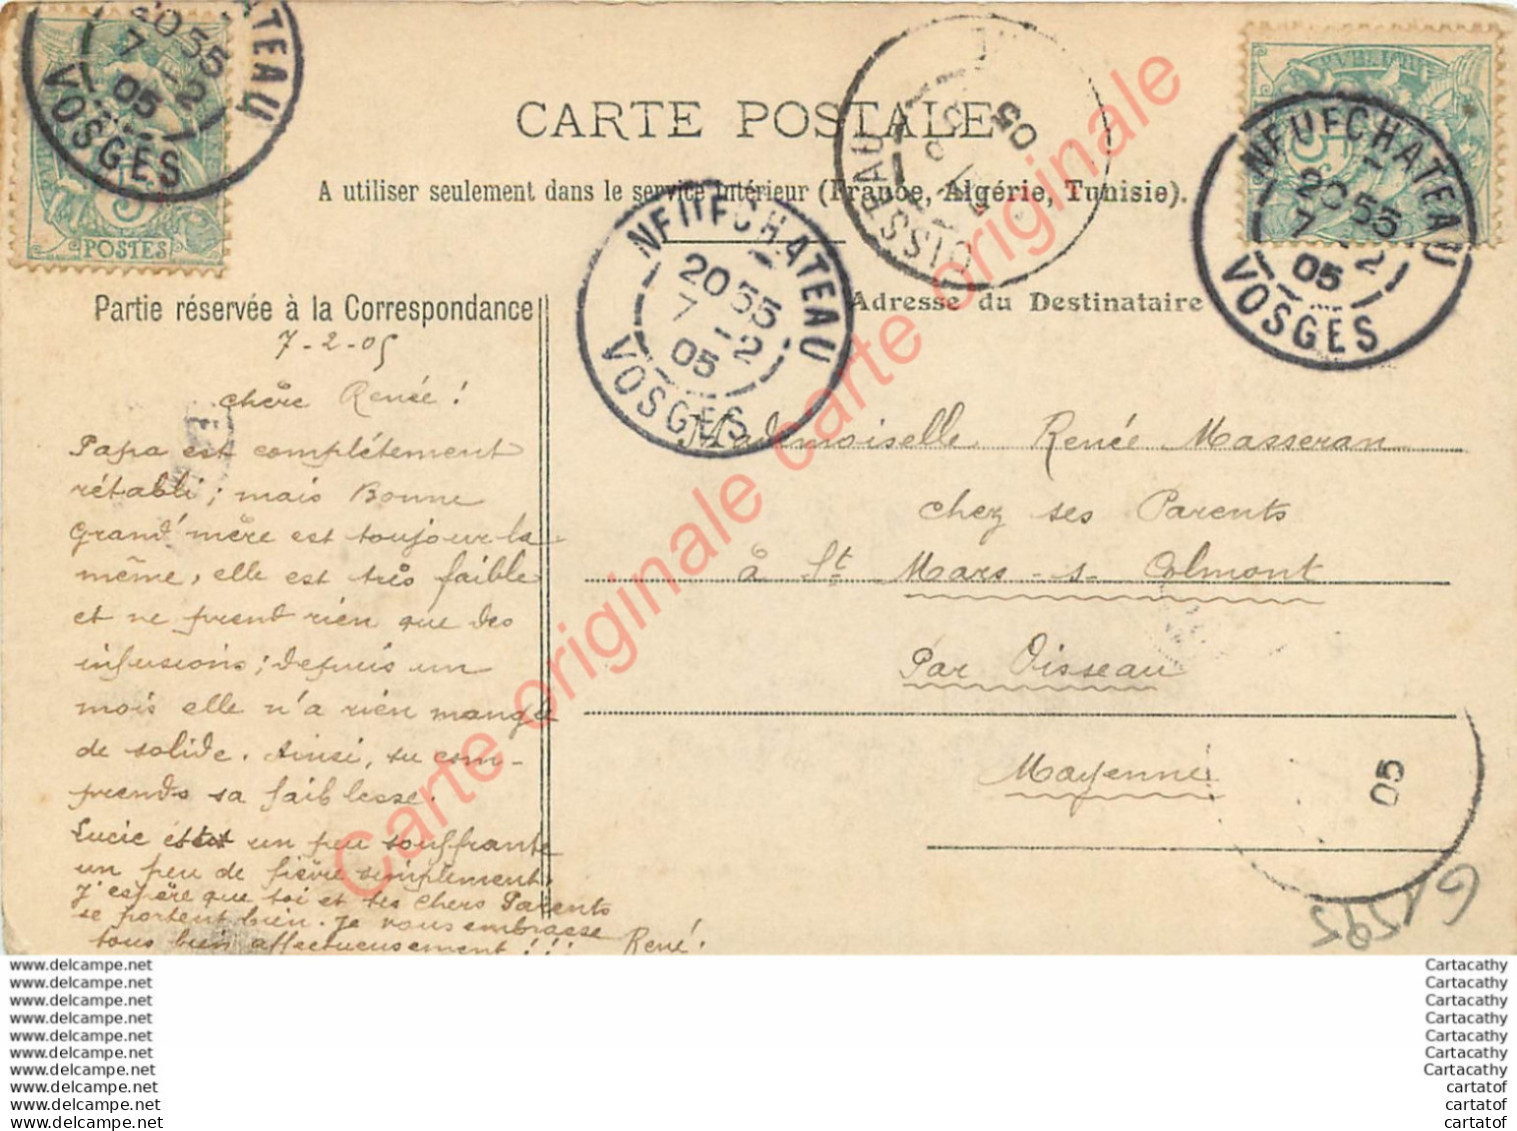 CARTE POSTALE
A utiliser seulement dans le service intérieur (France, Algérie, Tunisie).
Partie réservée à la Correspondance
Adresse du Destinataire
7-2-05
chère Renée !
Papa est complétement
rétabli ; mais Bonne
Grand'mère est toujours la
même, elle est très faible
et ne prend rien que des
infusions ; depuis un
mois elle n'a rien mangé
de solide. Ainsi, tu com-
prends sa faiblesse.
Lucie est un peu souffrante
un peu de fièvre simplement,
J'espère que toi et tes chers Parents
se portent bien. Je vous embrasse
tous bien affectueusement !!! René.
Mademoiselle Renée Masseran
chez ses Parents
à St Mars-s-Colmont
Par Oisseau
Mayenne
ATEAU
20 55
7 - 2
05
VOSGES
5c
POSTES
NEUFCHATEAU
20 55
7 - 2
05
VOSGES
OISSEAU
05
NEUFCHATEAU
20 55
7 - 2
05
VOSGES
05
G1595
Carte originale carte originale carte originale
www.delcampe.net
www.delcampe.net
www.delcampe.net
www.delcampe.net
www.delcampe.net
www.delcampe.net
www.delcampe.net
www.delcampe.net
www.delcampe.net
www.delcampe.net
Cartacathy
Cartacathy
Cartacathy
Cartacathy
Cartacathy
Cartacathy
Cartacathy
cartatof
cartatof
cartatof